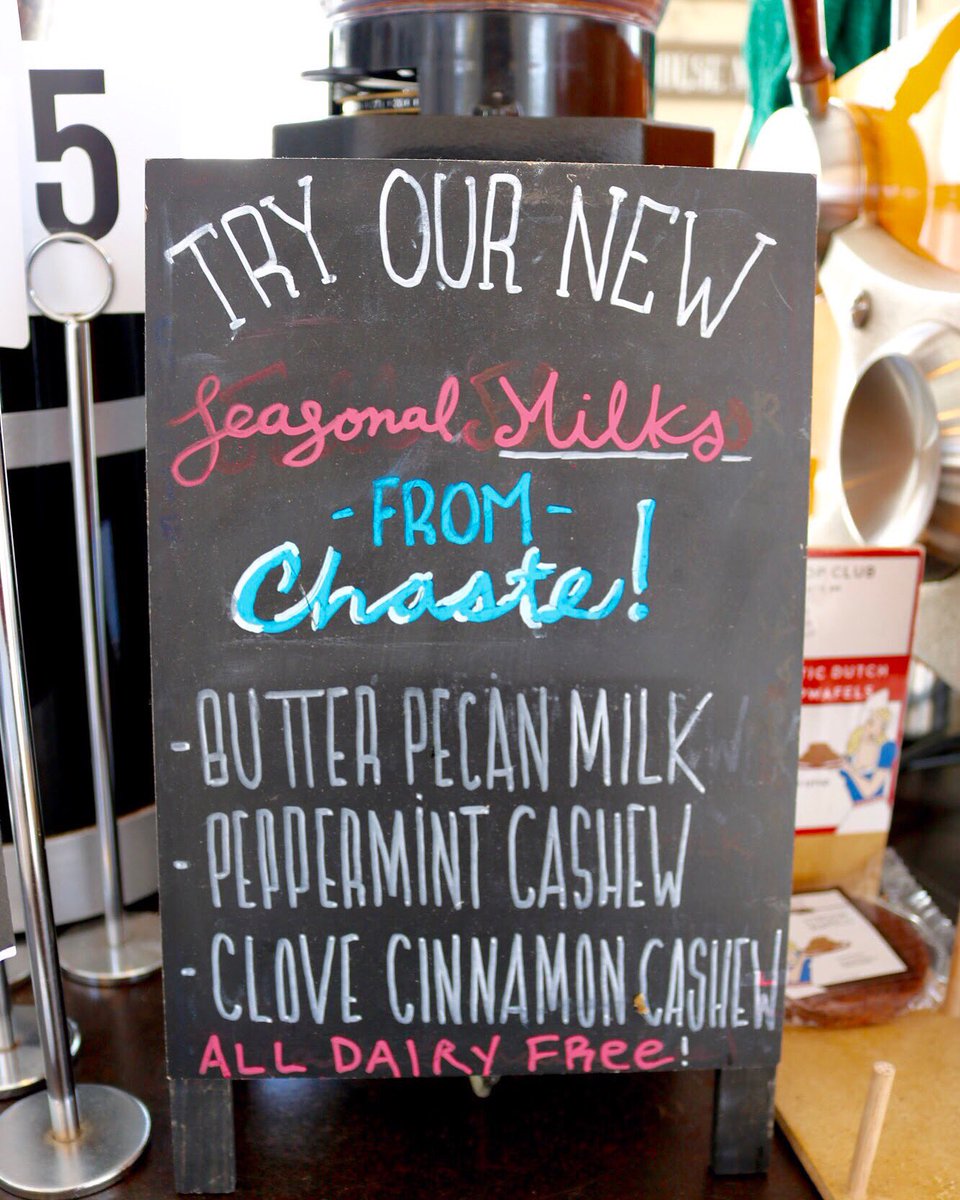 5
TRY OUR NEW
Seasonal Milks
- FROM -
Chaste!
- BUTTER PECAN MILK
- PEPPERMINT CASHEW
- CLOVE CINNAMON CASHEW
ALL DAIRY FRee!
CLUB
DUTCH